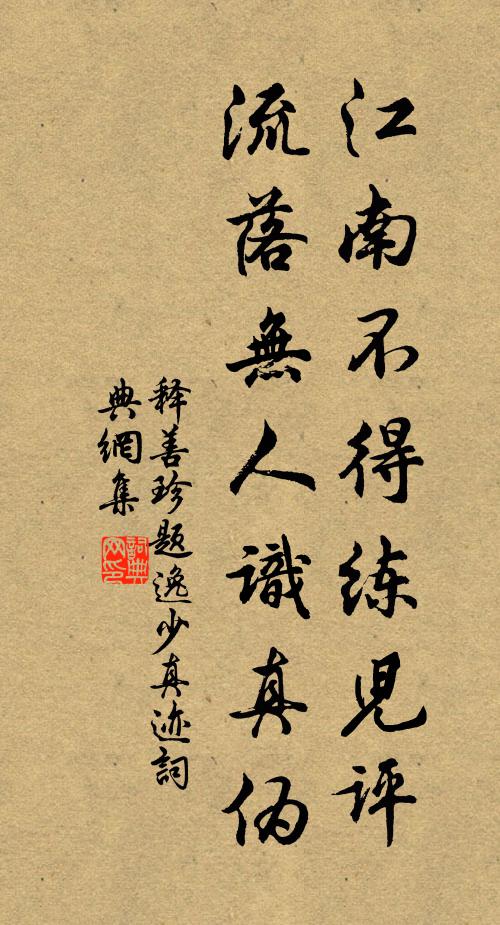 江南不得練兒評
流落無人識真伪
释善珍题逸少真迹詞
典網集
詞典
网印